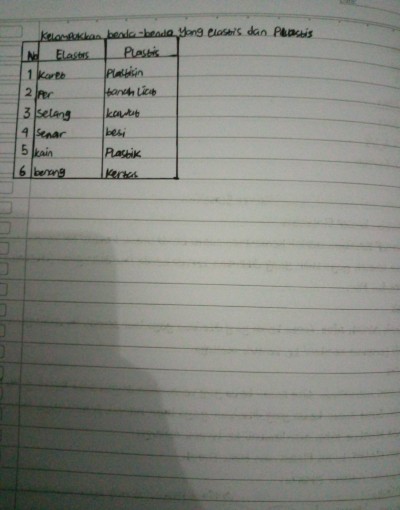 Kelompokkan benda-benda yang elastis dan Plastis
No Elastis Plastis
1 Karet Plastisin
2 Per tanah liat
3 Selang kawat
4 Senar besi
5 kain Plastik
6 benang Kertas